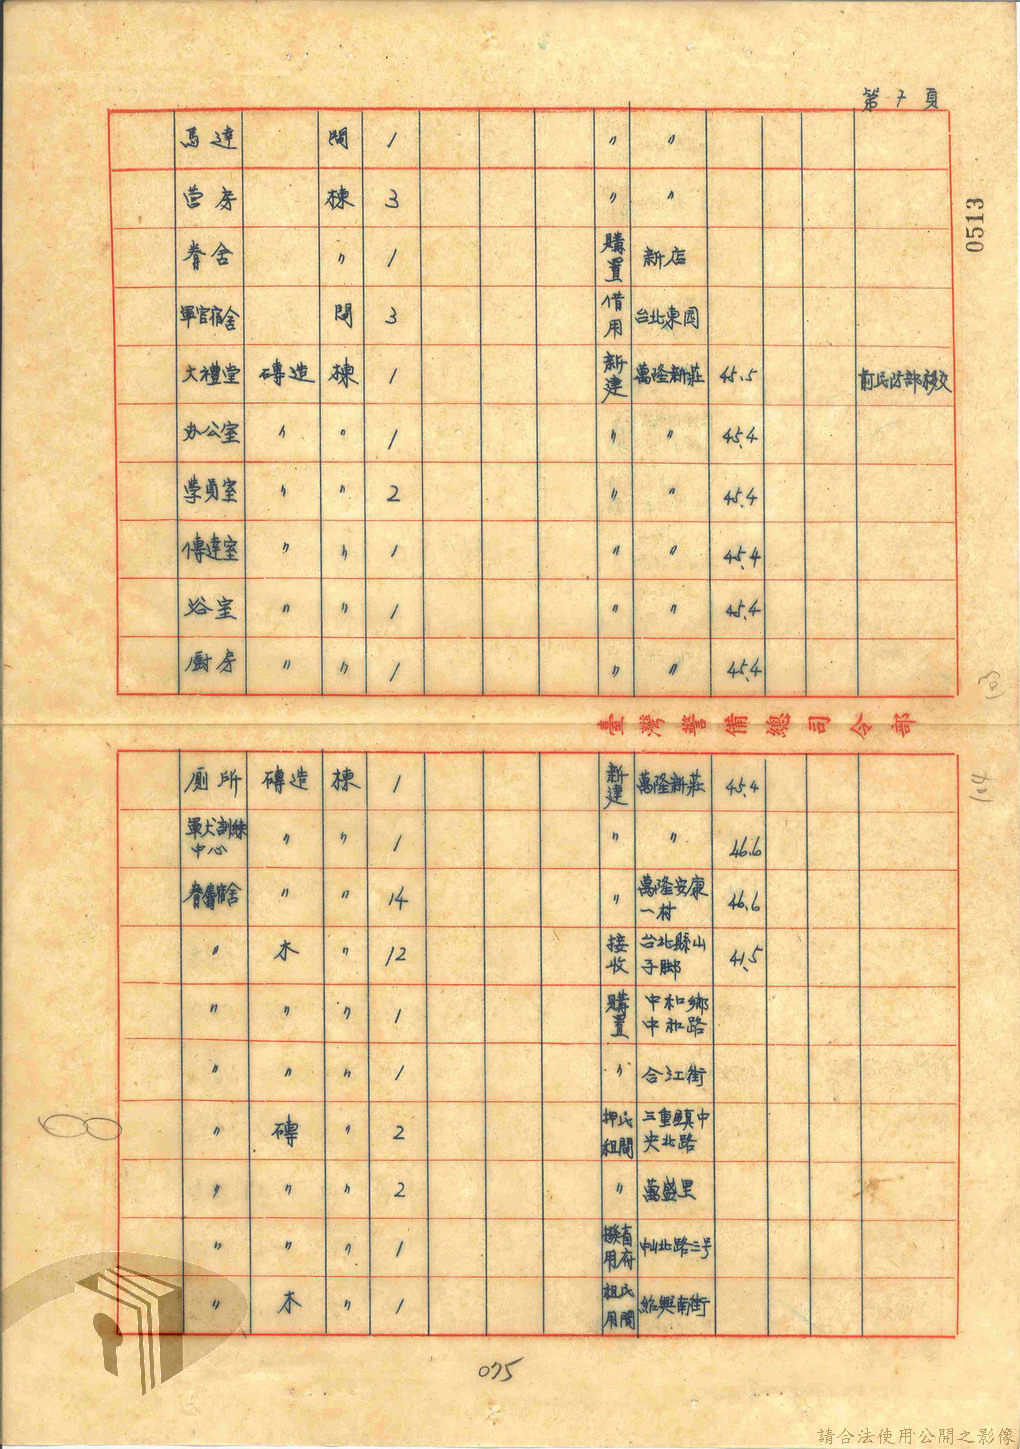 第7頁
0513
馬達 間 1 〃 〃
营房 棟 3 〃 〃
眷舍 〃 1 購置 新店
軍官宿舍 間 3 借用 台北東園
大禮堂 磚造 棟 1 新建 萬隆新莊 45.5 前民防部移交
办公室 〃 〃 1 〃 〃 45.4
學員室 〃 〃 2 〃 〃 45.4
傳達室 〃 〃 1 〃 〃 45.4
浴室 〃 〃 1 〃 〃 45.4
廚房 〃 〃 1 〃 〃 45.4
臺灣警備總司令部
厠所 磚造 棟 1 新建 萬隆新莊 45.4
軍犬訓練中心 〃 〃 1 〃 〃 46.6
眷屬宿舍 〃 〃 14 〃 萬隆安康一村 46.6
〃 木 〃 12 接收 台北縣山子脚 41.5
〃 〃 〃 1 購置 中和鄉中和路
〃 〃 〃 1 〃 合江街
〃 磚 〃 2 押租民間 三重鎮中央北路
〃 〃 〃 2 〃 萬盛里
〃 〃 〃 1 撥用省府 中山北路三号
〃 木 〃 1 租用民間 紹興南街
075
請合法使用公開之影像